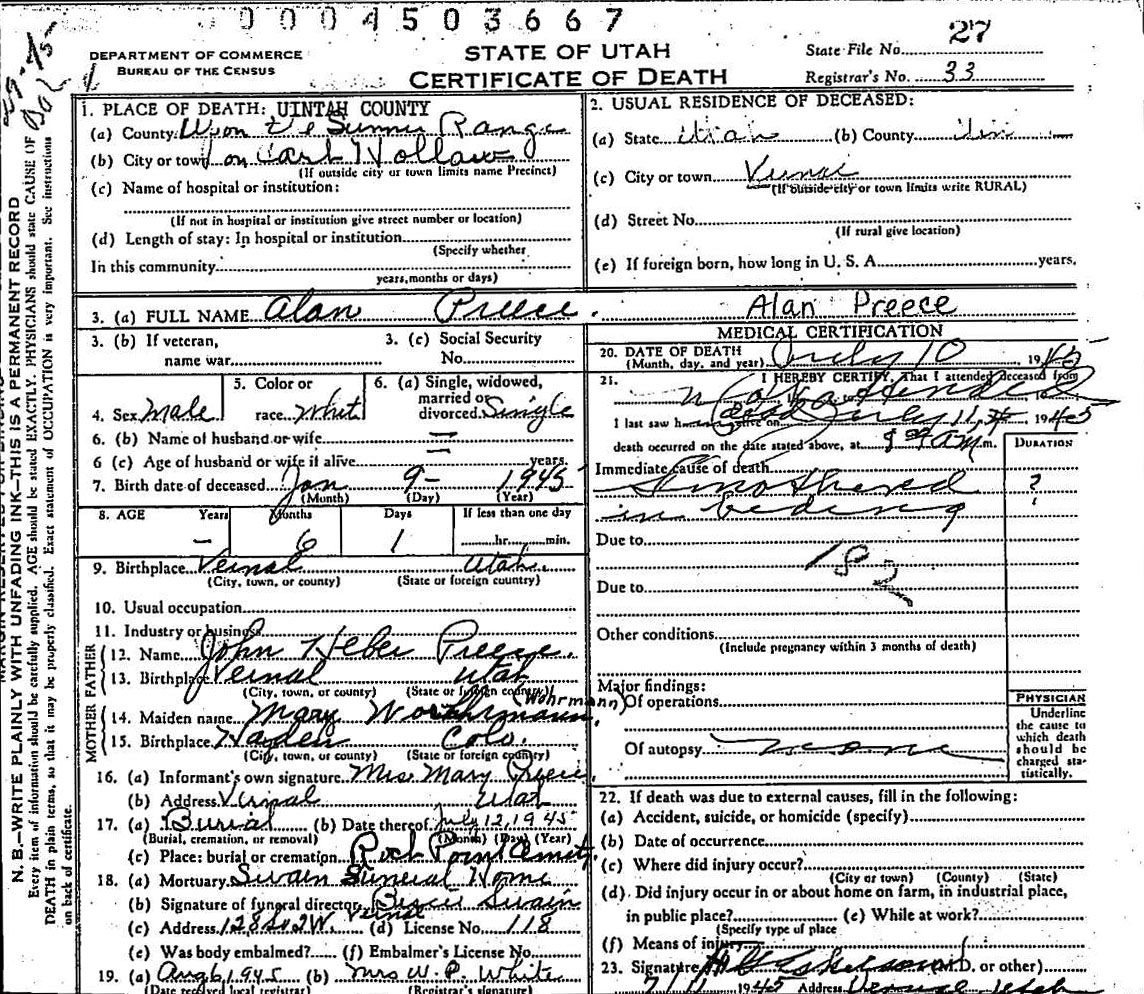 0004503667
DEPARTMENT OF COMMERCE
BUREAU OF THE CENSUS
STATE OF UTAH
CERTIFICATE OF DEATH
State File No. 27
Registrar's No. 33
N. B.—WRITE PLAINLY WITH UNFADING INK—THIS IS A PERMANENT RECORD
Every item of information should be carefully supplied. AGE should be stated EXACTLY. PHYSICIANS should state CAUSE OF
DEATH in plain terms, so that it may be properly classified. Exact statement of OCCUPATION is very important. See instructions
on back of certificate.
1. PLACE OF DEATH: UINTAH COUNTY
(a) County Upon Summer Range
(b) City or town on Carl Hollow
(If outside city or town limits name Precinct)
(c) Name of hospital or institution:
(If not in hospital or institution give street number or location)
(d) Length of stay: In hospital or institution
(Specify whether
In this community
years, months or days)
2. USUAL RESIDENCE OF DECEASED:
(a) State Utah (b) County
(c) City or town Vernal
(If outside city or town limits write RURAL)
(d) Street No.
(If rural give location)
(e) If foreign born, how long in U. S. A. years.
3. (a) FULL NAME Alan Preece. Alan Preece
3. (b) If veteran,
name war
3. (c) Social Security
No.
4. Sex Male
5. Color or
race White
6. (a) Single, widowed,
married or
divorced Single
6. (b) Name of husband or wife —
6 (c) Age of husband or wife if alive — years
7. Birth date of deceased Jan 9- 1945
(Month) (Day) (Year)
8. AGE Years Months Days If less than one day
– 6 1 hr. min.
9. Birthplace Vernal Utah.
(City, town, or county) (State or foreign country)
10. Usual occupation
11. Industry or business
FATHER
12. Name John Heber Preece.
13. Birthplace Vernal Utah
(City, town, or county) (State or foreign country)
MOTHER
14. Maiden name Mary Worthrmann. (Wohrmann)
15. Birthplace Hayden Colo.
(City, town, or county) (State or foreign country)
16. (a) Informant's own signature Mrs. Mary Preece.
(b) Address Vernal Utah
17. (a) Burial (b) Date thereof July 12, 1945
(Burial, cremation, or removal) (Month) (Day) (Year)
(c) Place: burial or cremation Rock Point
18. (a) Mortuary Swain Funeral Home
(b) Signature of funeral director Swain
(c) Address 128 So 2W. Vernal (d) License No. 118
(e) Was body embalmed? (f) Embalmer's License No.
19. (a) Aug 6, 1945 (b) Mrs W. P. White
(Date received local registrar) (Registrar's signature)
MEDICAL CERTIFICATION
20. DATE OF DEATH
(Month, day, and year) July 10, 1945
21. I HEREBY CERTIFY, That I attended deceased from
I last saw h alive on dead July 11, 1945
death occurred on the date stated above, at 8 00 AM m.
DURATION
Immediate cause of death
Smothered ?
in beding
Due to
182
Due to
Other conditions
(Include pregnancy within 3 months of death)
Major findings:
Of operations
Of autopsy none
PHYSICIAN
Underline
the cause to
which death
should be
charged sta-
tistically.
22. If death was due to external causes, fill in the following:
(a) Accident, suicide, or homicide (specify)
(b) Date of occurrence
(c) Where did injury occur?
(City or town) (County) (State)
(d) Did injury occur in or about home on farm, in industrial place,
in public place? (e) While at work?
(Specify type of place
(f) Means of injury
23. Signature (M.D. or other)
7/11 1945 Address Vernal Utah